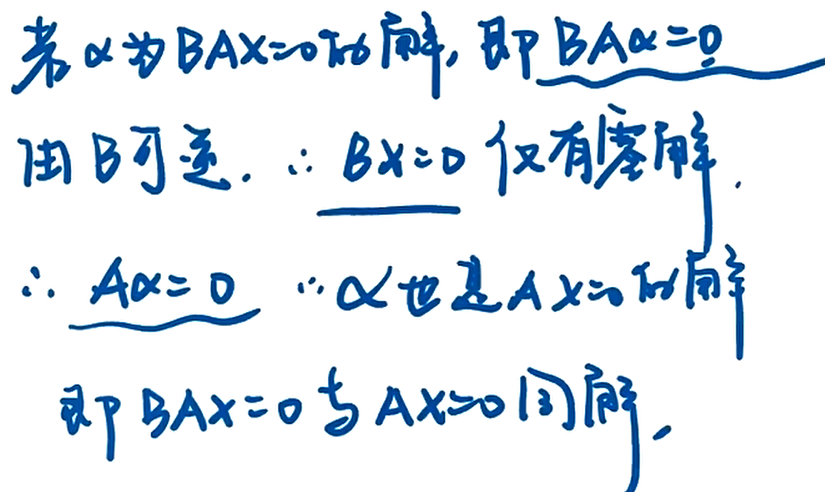 若α为BAX=0的解,即BAα=0
由B可逆.∴BX=0仅有零解.
∴Aα=0 ∴α也是AX=0的解
即BAX=0与AX=0同解.